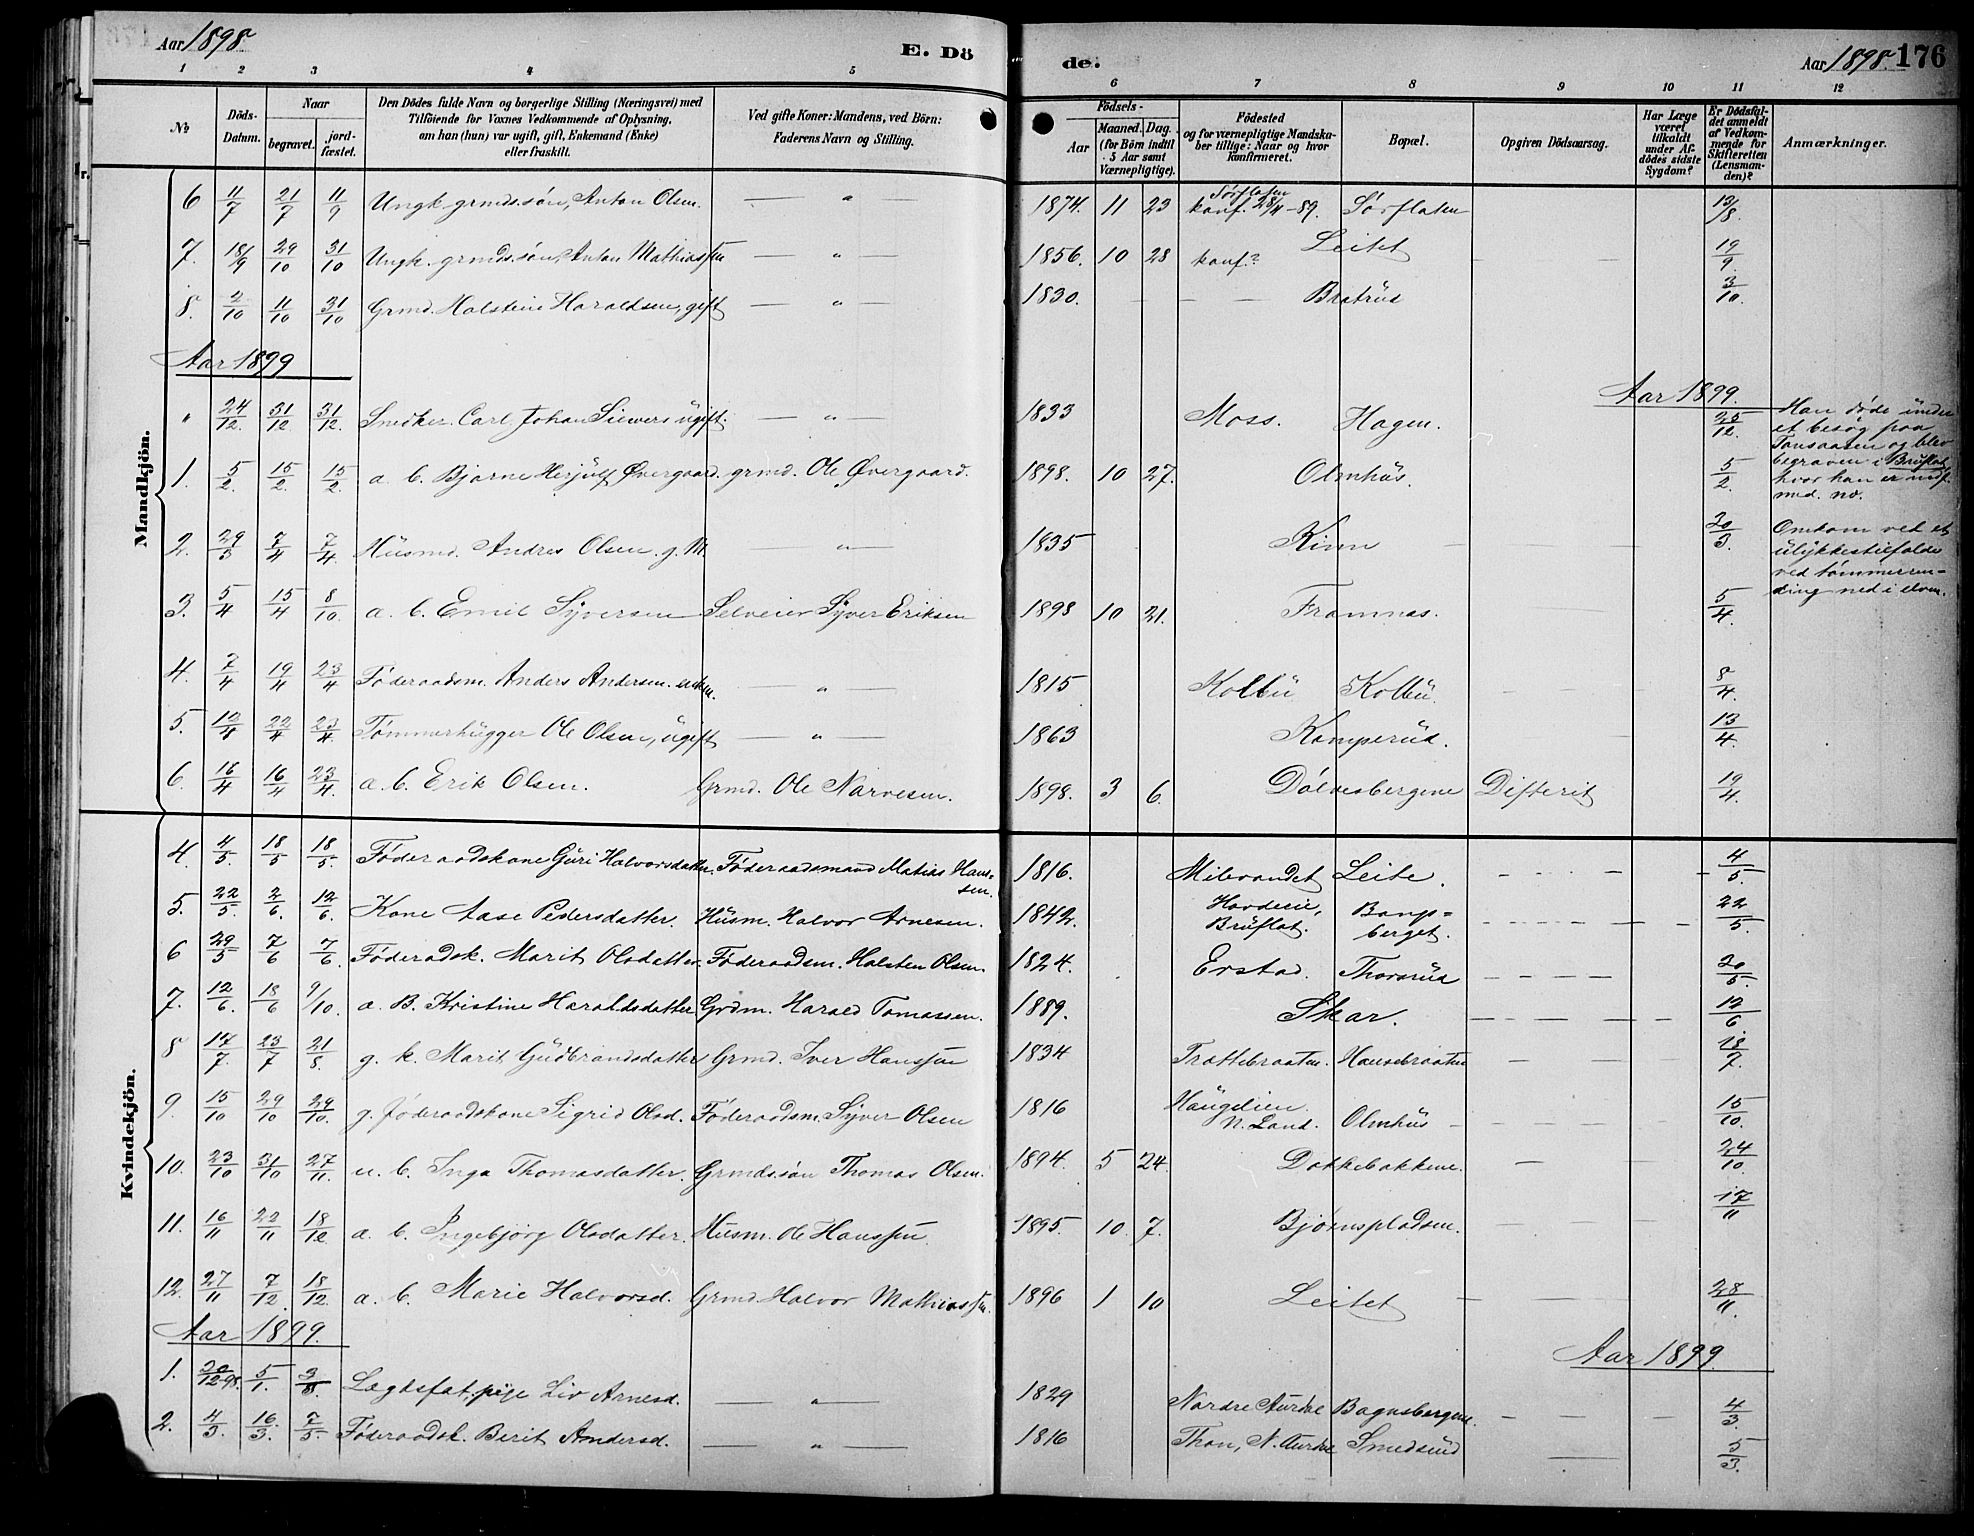 Aar 1898. E. Dö
1 2 3 4 5
No Döds-Datum. Naar begravet. jordfæstet. Den Dödes fulde Navn og borgerlige Stilling (Næringsvei) med Tilföiende for Voxnes Vedkommende af Oplysning, om han (hun) var ugift, gift, Enkemand (Enke) eller fraskilt. Ved gifte Koner: Mandens, ved Börn: Faderens Navn og Stilling.
de. Aar 1898. 176
6 7 8 9 10 11 12
Födsels- Aar Maaned. Dag. (for Börn indtil 5 Aar samt Værnepligtige). Födested og for værnepligtige Mandskaber tillige: Naar og hvor konfirmeret. Bopæl. Opgiven Dödsaarsag. Har Læge været tilkaldt under Afdödes sidste Sygdom? Er Dödsfaldet anmeldt af Vedkommende for Skifteretten (Lensmanden)? Anmærkninger.
Mandkjön.
6 11/7 21/7 11/9 Ungk. grmds.søn, Anton Olsen. — " — 1874. 11 23 Sørflaten konf. 28/4-89. Sørflaten 13/8.
7. 18/9 29/10 31/10 Ungk. grmds.søn, Anton Mathiassen — " — 1856. 10 28 konf? Leitet 19/9.
8. 2/10 11/10 31/10 Grmd. Holstein Haraldsen, gift — " — 1830. Bratrud 3/10.
Aar 1899 Aar 1899.
" 24/12. 31/12 31/12. Snedker Carl Johan Siewers ugift. — " — 1833 Moss. Hagen. 25/12. Han døde under et besøg paa Tonsaasen og blev begraven i Bruflat hvor han er indf. med. no.
1. 5/2. 15/2. 15/2. a. b. Bjarne Herjulf Øvergaard. grmd. Ole Øvergaard. 1898. 10 27. Olmhus. 5/2.
2. 29/3 7/4 7/4. Husmd. Andres Olsen. g. M. — " — 1835 Kinn 30/3. Omkom ved et ulykkestilfælde ved tømmerrending ned i elven.
3. 5/4 15/4 8/10. a. b. Emil Syversen Selveier Syver Eriksen 1898 10 21. Framnas. 5/4.
4. 7/4 19/4 23/4 Føderaadsm. Anders Andersen. enkem. — " — 1815 Kolbu Kolbu. 8/4.
5. 12/4 22/4 23/4. Tømmerhugger Ole Olsen, ugift — " — 1863 Kamperud. 13/4.
6. 16/4 16/4 23/4. a. b. Erik Olsen. Grmd. Ole Narvesen. 1898. 3 6. Dølvesbergene Difterit 19/4.
Kvindekjön.
4. 4/5. 18/5 18/5. Føderaadskone Guri Halvorsdatter. Føderaadsmand Matias Hansen. 1816. Milevandet Leite. 4/5.
5. 22/5. 2/6. 12/6. Kone Aase Pedersdatter. Husm. Halvor Arnesen. 1842. Havdeie, Bruflat. Bangsberget. 22/5.
6 29/5 7/6 7/6. Føderadsk. Marit Olsdatter. Føderaadsm. Halsten Olsen. 1824. Erstad. Thorsrud 30/5.
7. 12/6. 18/6 9/10. a. B. Kristine Haraldsdatter Grdm. Harald Tomassen. 1889. Skar. 12/6
8 17/7. 23/7 21/8. g. k. Marit Gudbrandsdatter Grmd. Iver Hanssen 1834 Trøttebraaten. Hansebraaten 18/7.
9. 15/10 29/10 29/10. g. føderaadskone Sigrid Olsd. Føderaadsm. Syver Olsen 1816 Haugelien N. Land. Olmhus 15/10.
10. 23/10 31/10 27/11. u. b. Inga Thomasdatter. Grmdssøn Thomas Olsen. 1894. 5 24. Dokkebakkene. 24/10.
11. 16/11 22/11 18/12 a. b. Ingebjørg Olsdatter. Husm. Ole Hanssen. 1895. 10. 7. Bjørnspladsen. 17/11
12. 27/11 7/12. 18/12. a. b. Marie Halvorsd. Grmd. Halvor Mathiassen. 1896 1 10 Leitet 28/11.
Aar 1899. Aar 1899
1. 30/12 98. 5/1. 3/8. Lægdsfat. pige Liv Arnesd. — " — 1829 Nordre Aurdal Bagnsbergene. 4/3.
2. 4/3. 16/3. 7/5. Føderaadsk. Berit Andersd. — " — 1816 Thon, N. Aurdal Smedsrud 5/3.